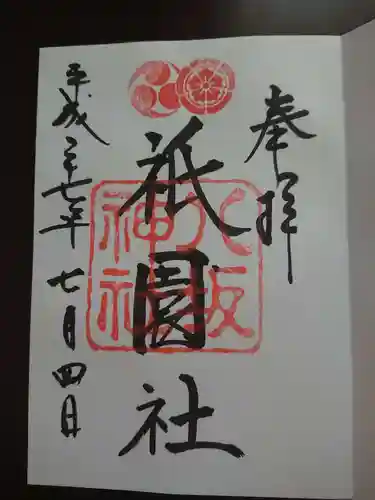 奉拝
祇園社
八坂神社
平成二十七年七月四日